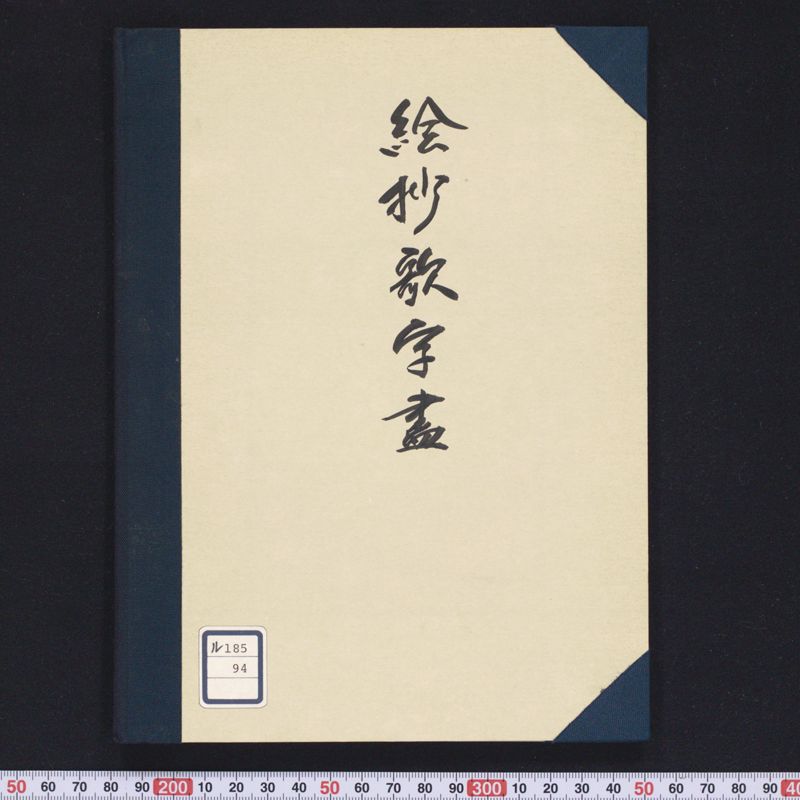 絵抄歌字盡
ル185
94
50 60 70 80 90 200 10 20 30 40 50 60 70 80 90 300 10 20 30 40 50 60 70 80 90